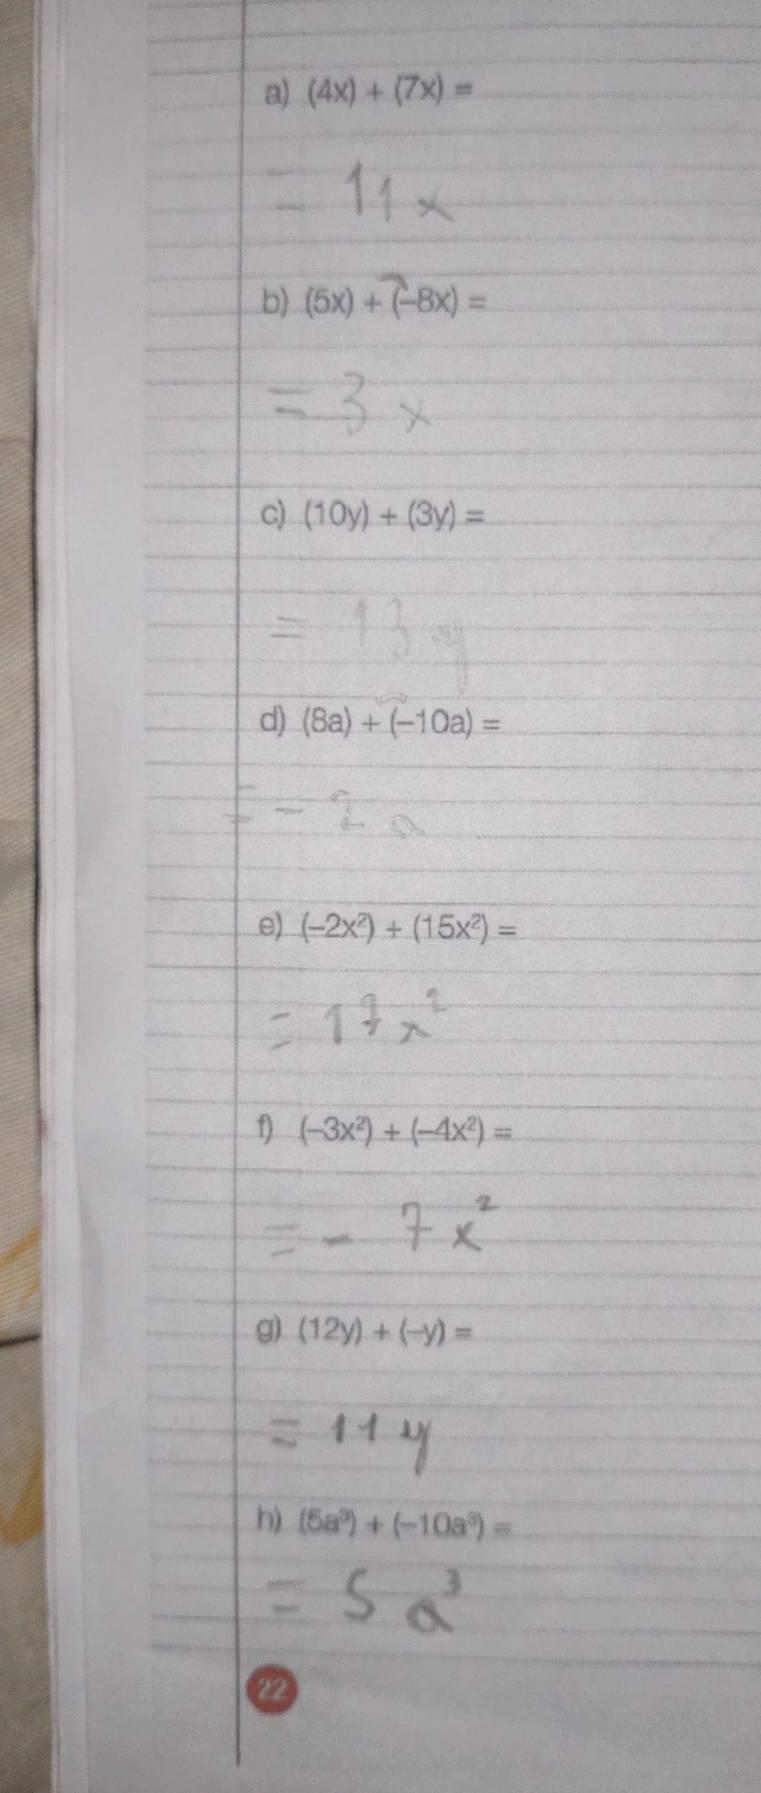 a) (4x) + (7x) =
= 11x
b) (5x) + (−8x) =
= 3x
c) (10y) + (3y) =
= 13y
d) (8a) + (−10a) =
= - 2a
e) (−2x²) + (15x²) =
= 17x²
f) (−3x²) + (−4x²) =
= - 7x²
g) (12y) + (−y) =
= 11y
h) (5a³) + (−10a³) =
= 5a³
22